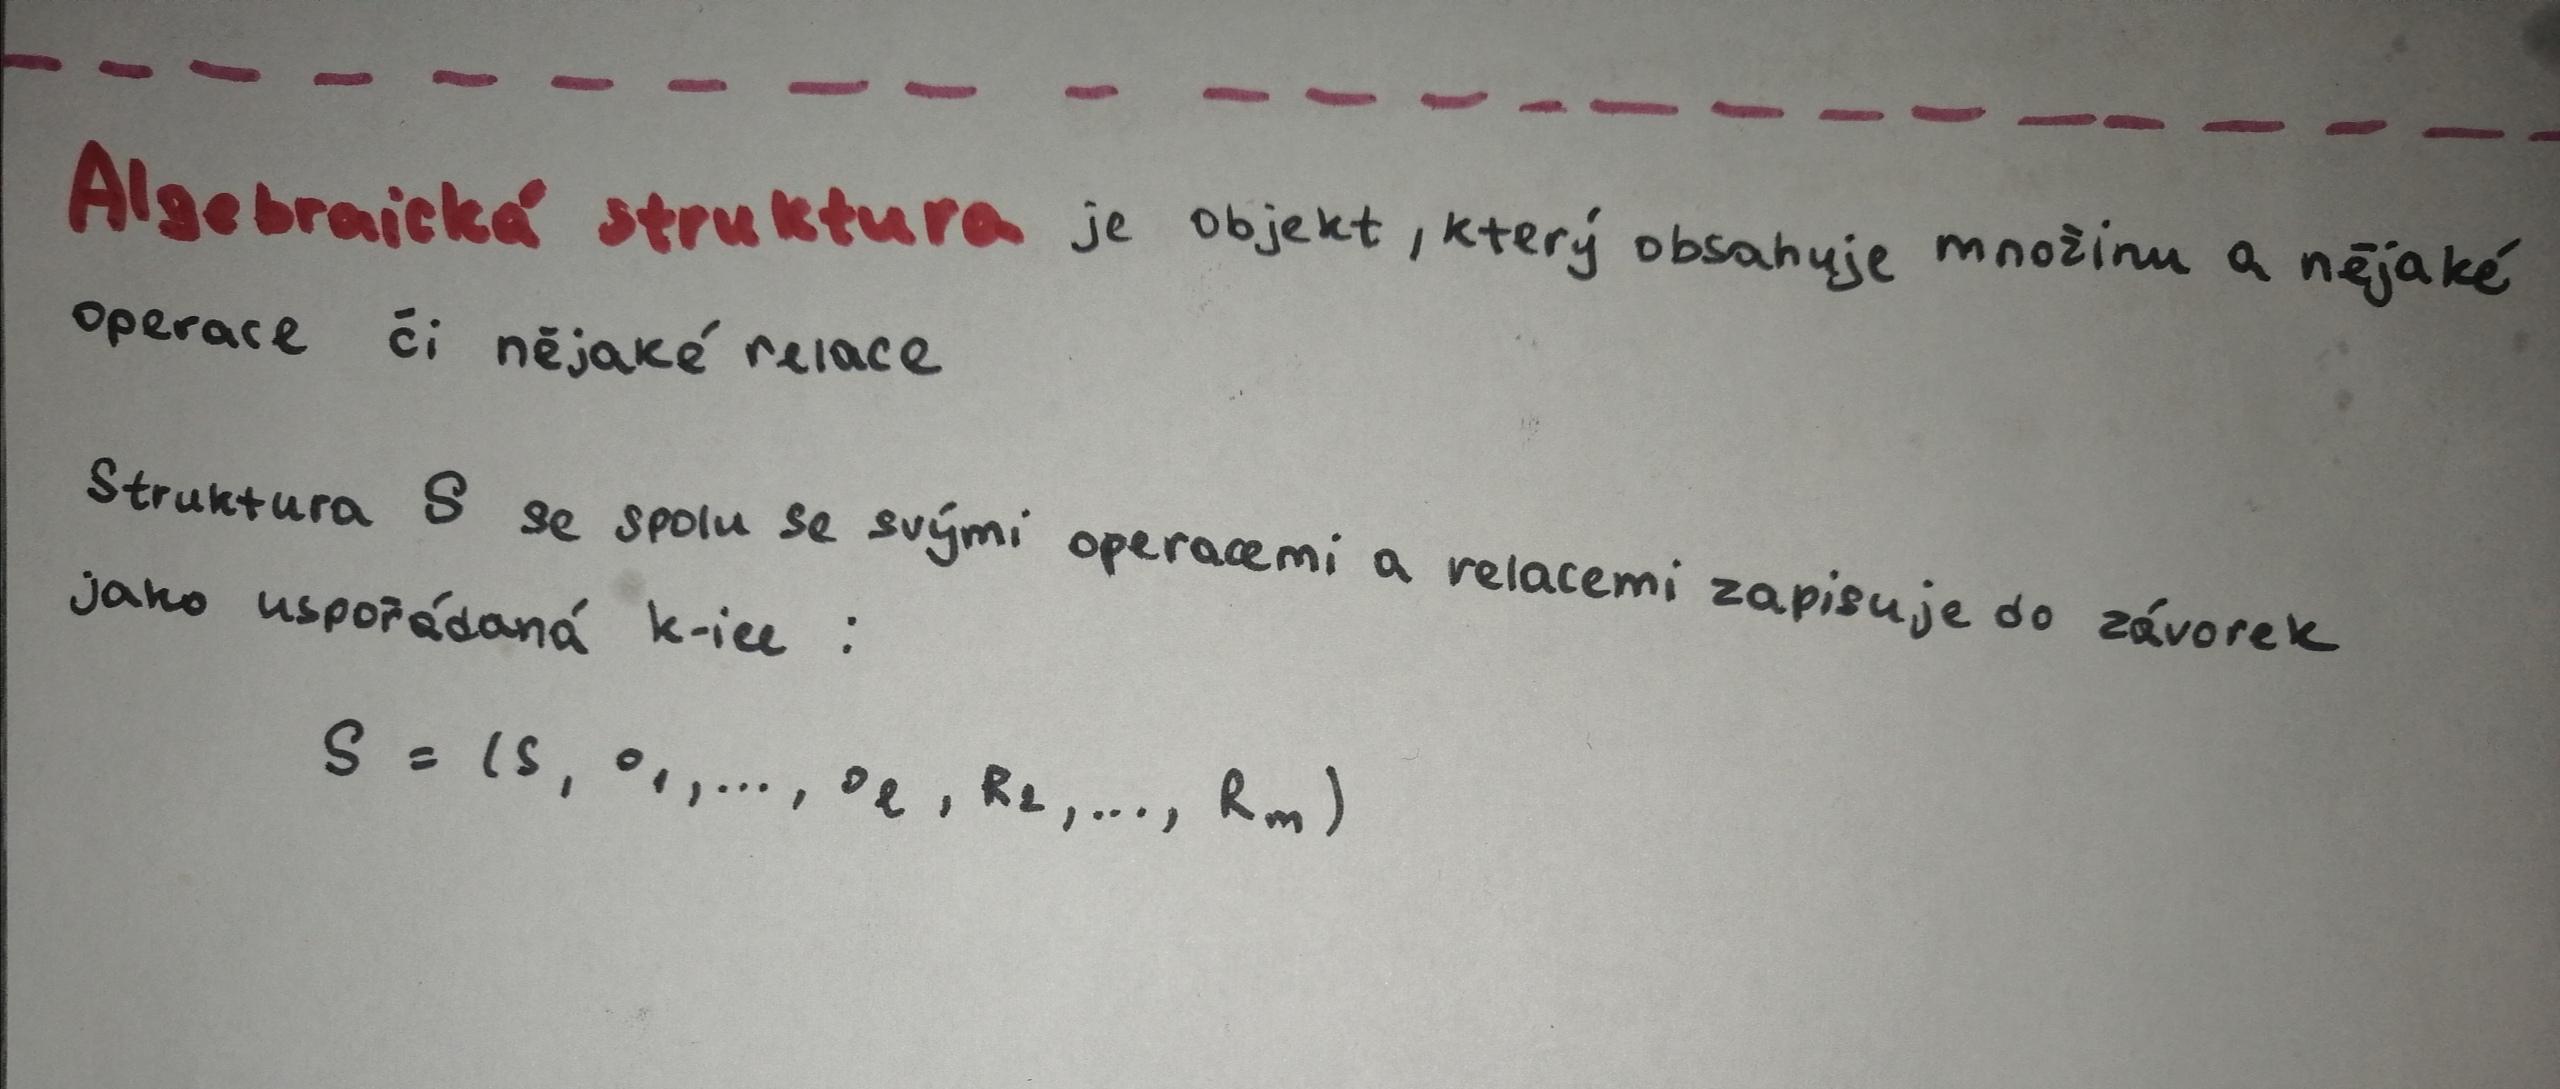 Algebraická struktura je objekt, který obsahuje množinu a nějaké
operace či nějaké relace
Struktura S se spolu se svými operacemi a relacemi zapisuje do závorek
jako uspořádaná k-ice :
S = (S, o₁,..., oₗ, R₁,..., Rₘ)